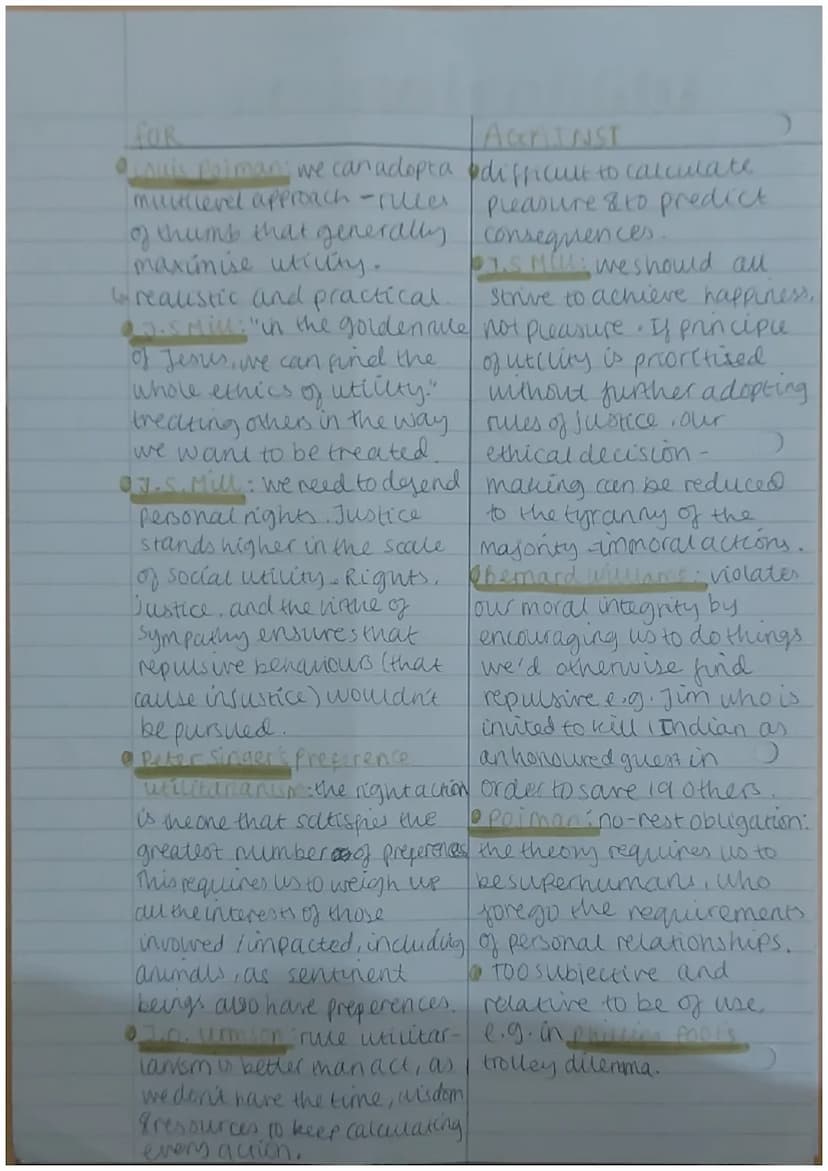 FOR
Louis Pojman: we can adopt a
multilevel approach - rules
of thumb that generally
maximise utility.
↳ realistic and practical.
J.S Mill: "in the golden rule
of Jesus, we can find the
whole ethics of utility."
treating others in the way
we want to be treated.
J.S. Mill: we need to defend
personal rights. Justice
stands higher in the scale
of social utility. Rights,
justice, and the virtue of
sympathy ensures that
repulsive behaviours (that
cause injustice) wouldn't
be pursued.
Peter Singer's Preference
utilitarianism: the right action
is the one that satisfies the
greatest number of preferences
This requires us to weigh up
all the interests of those
involved / impacted, including
animals, as sentinent
beings also have preferences.
J.O. Urmson: rule utilitar-
ianism is better than act, as
we don't have the time, wisdom
& resources to keep calculating
every action.
AGAINST
difficult to calculate
pleasure & to predict
consequences.
J.S Mill: we should all
strive to achieve happiness,
not pleasure. If principle
of utility is prioritised
without further adopting
rules of justice, our
ethical decision-
making can be reduced
to the tyranny of the
majority - immoral actions.
Bernard Williams: violates
our moral integrity by
encouraging us to do things
we'd otherwise find
repulsive e.g. Jim who is
invited to kill 1 Indian as
an honoured guest in
order to save 19 others.
Pojman: no-rest obligation:
the theory requires us to
be superhumans, who
forego the requirements
of personal relationships.
Too subjective and
relative to be of use,
e.g. in Philippa Foot's
trolley dilemma.